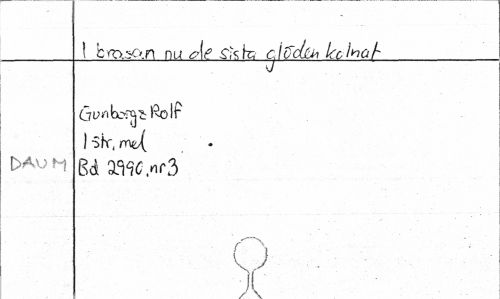 I brasan nu de sista glöden kolnat
Gunborg & Rolf
1 str, mel
DAUM Bd 2990, nr 3